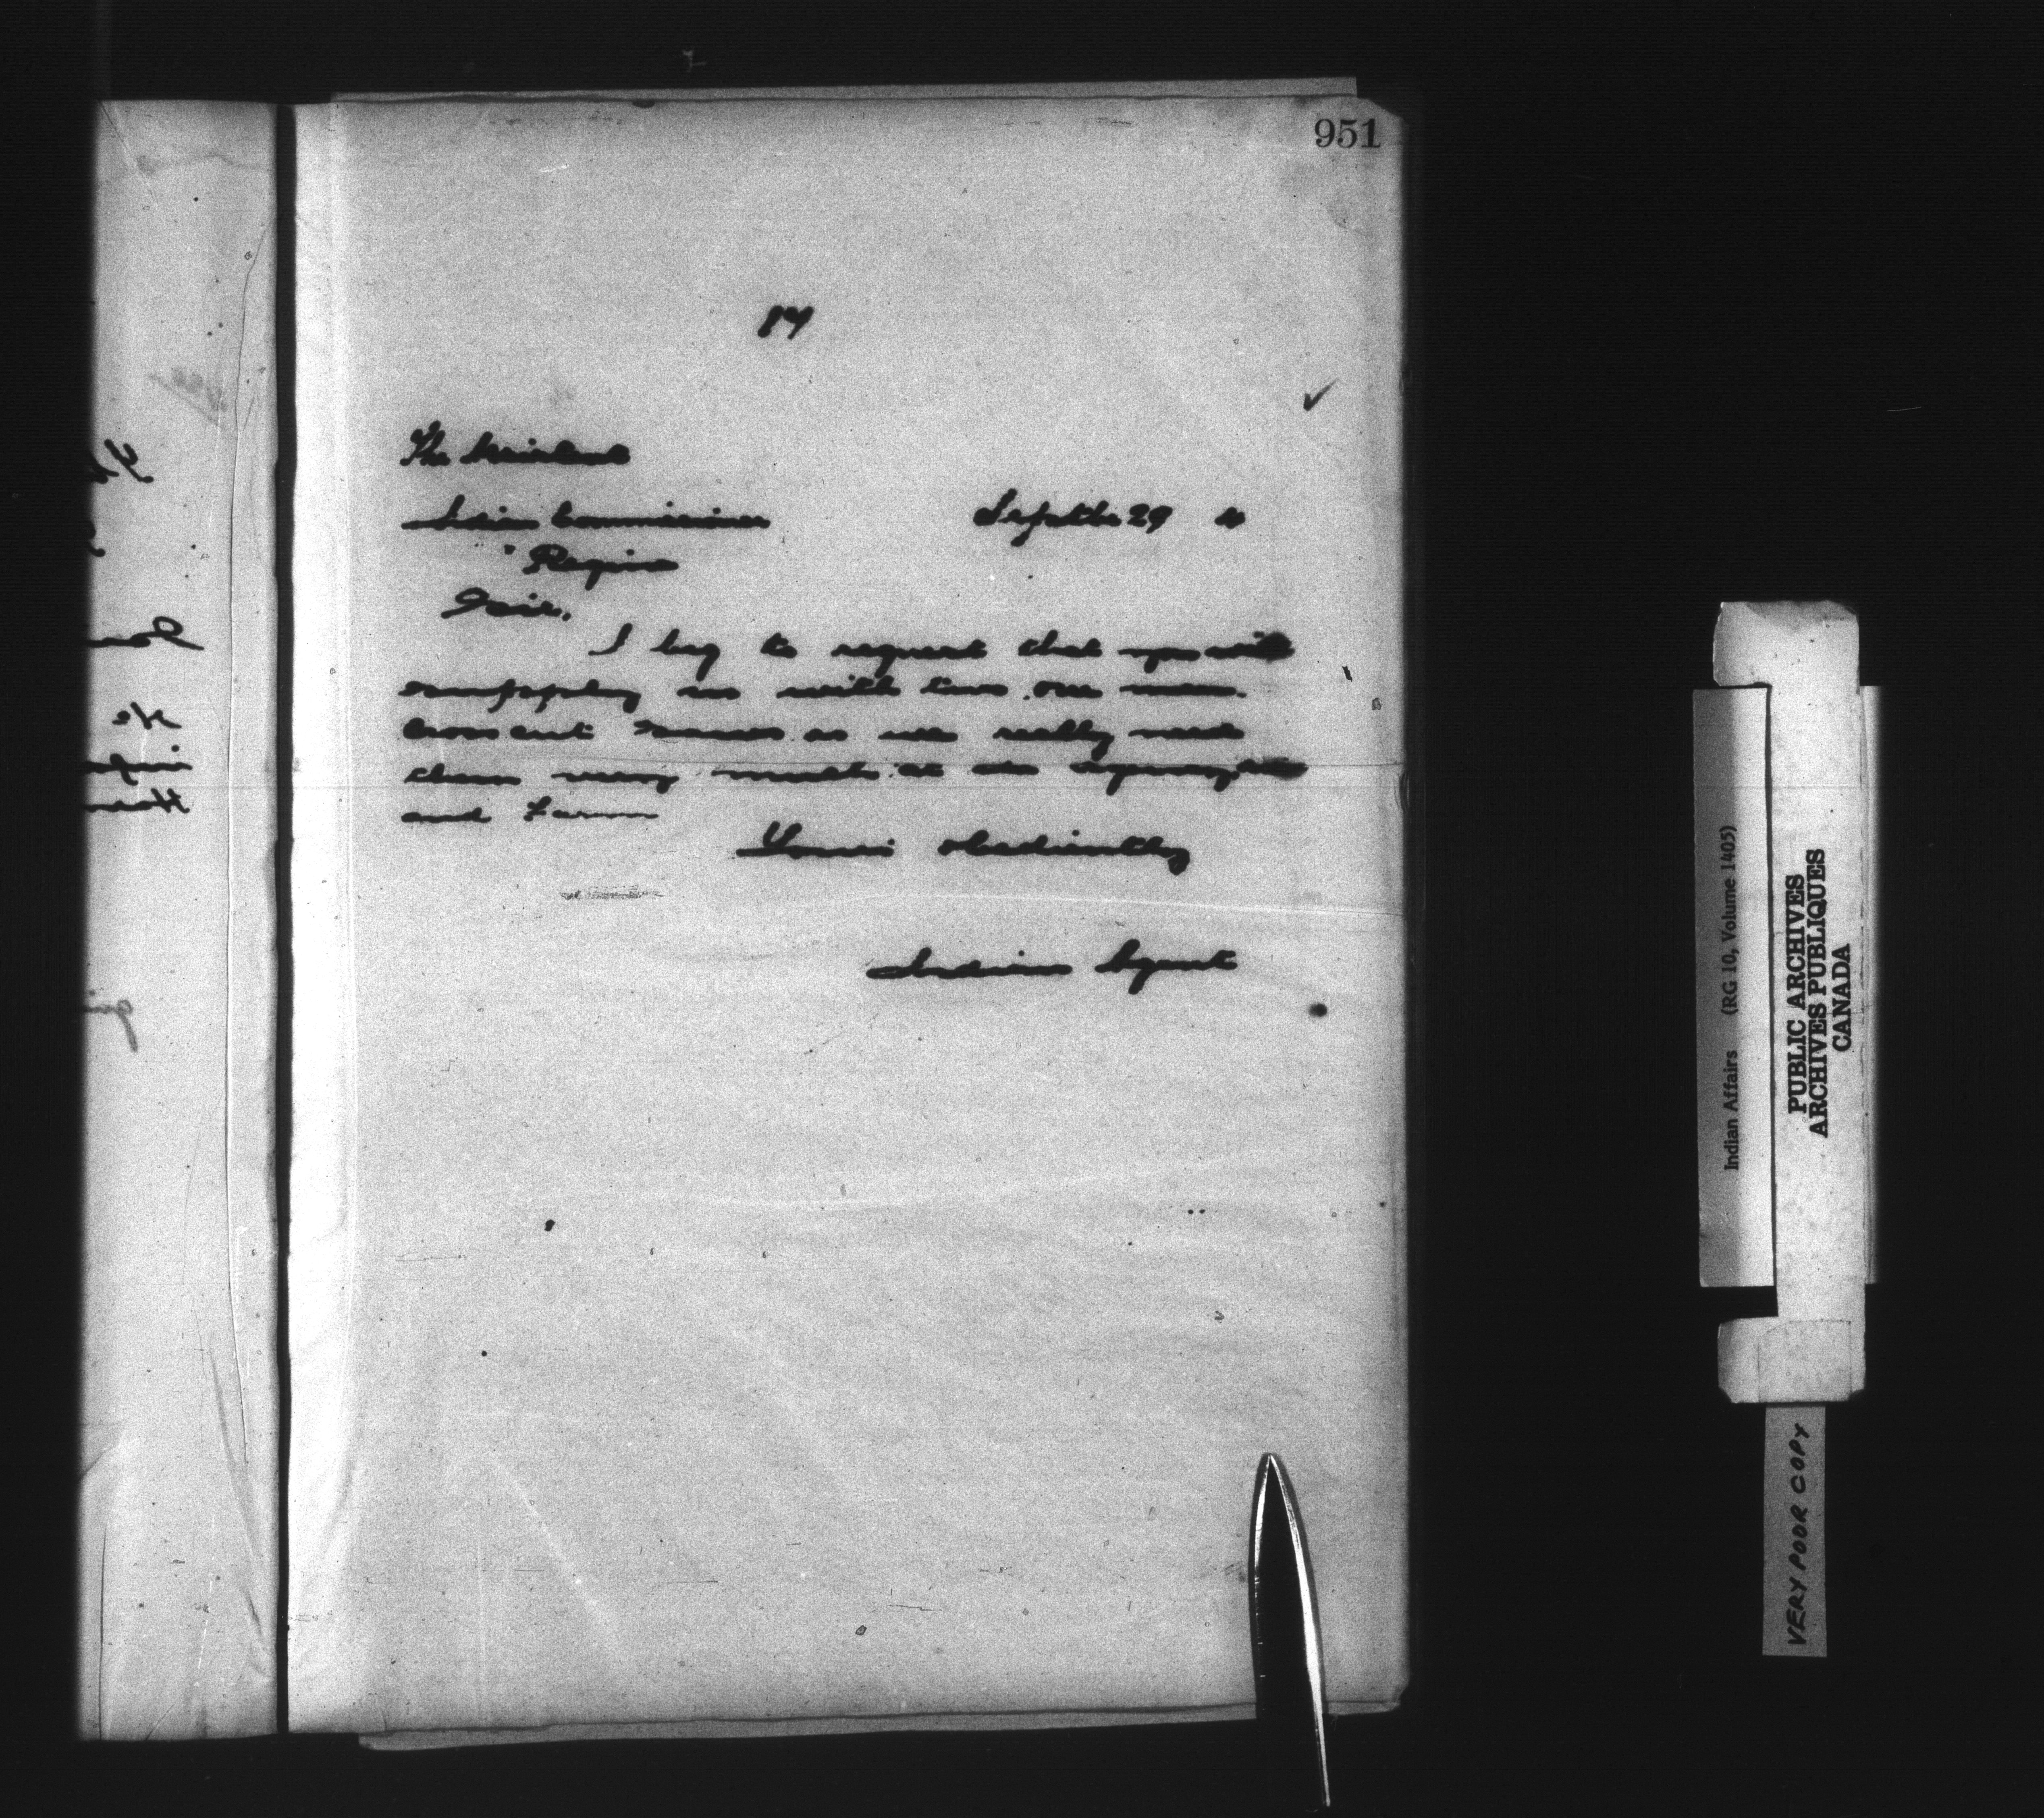 951
The Assistant
Indian Commissioner Septbr 29
Regina
Sir.
I beg to request that you will
supply us with two one man
Cross cut saws as we really need
them very much at the agency
and Farm
Yours obediently
Indian Agent
Indian Affairs (RG 10, Volume 1405)
PUBLIC ARCHIVES
ARCHIVES PUBLIQUES
CANADA
VERY POOR COPY